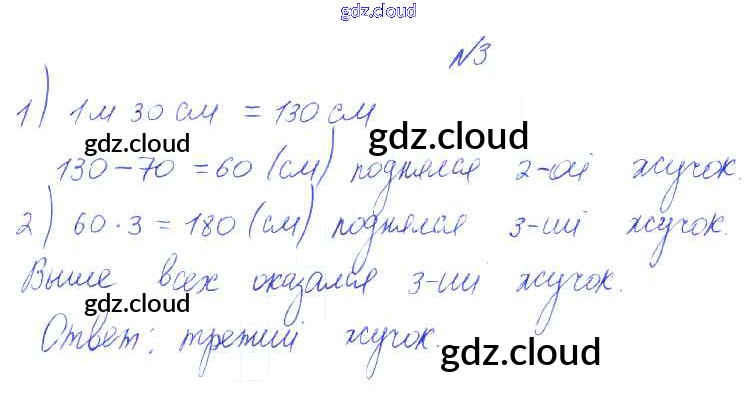 gdz.cloud
№3
1) 1 м 30 см = 130 см
gdz.cloud
gdz.cloud
130 - 70 = 60 (см) поднялся 2-ой жучок.
2) 60 · 3 = 180 (см) поднялся 3-ий жучок.
Выше всех оказался 3-ий жучок.
gdz.cloud
gdz.cloud
Ответ: третий жучок.
gdz.cloud